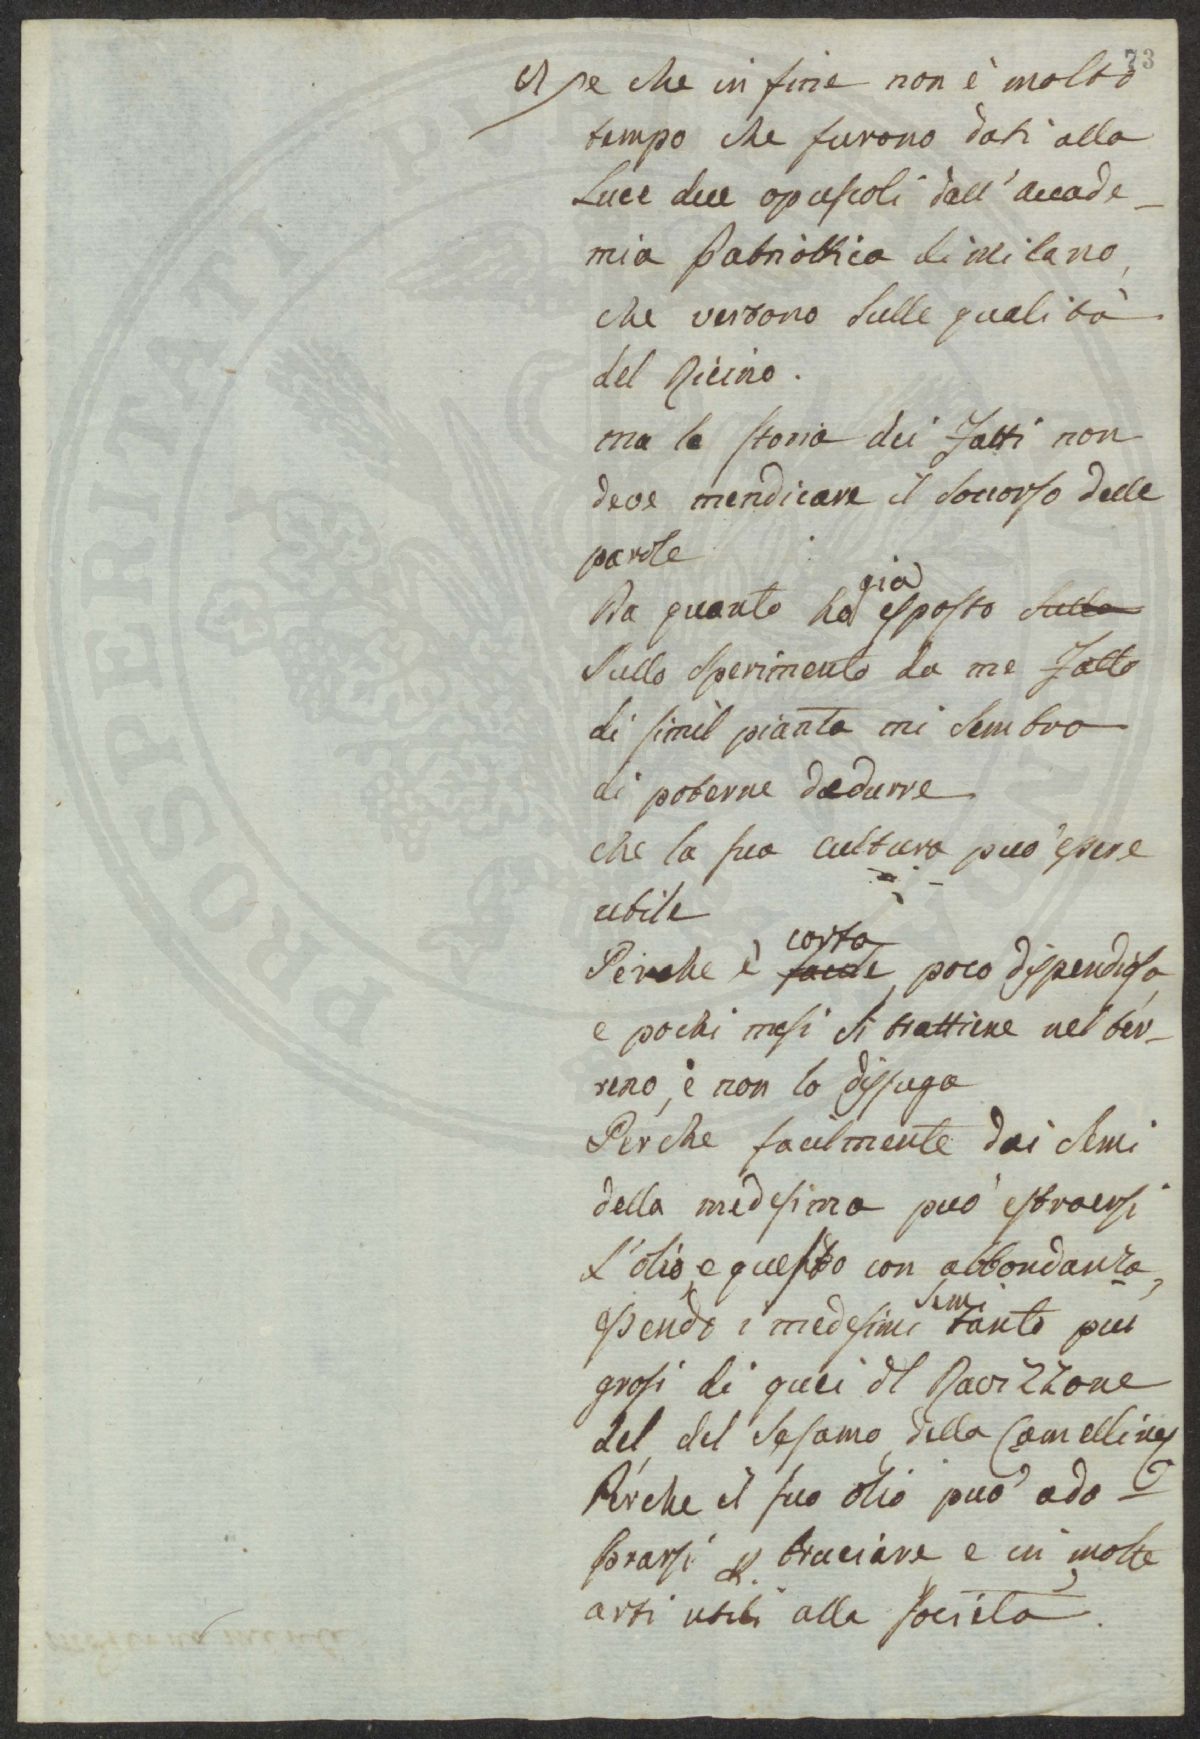 73
e che in fine non è molto
tempo che furono dati alla
Luce due opuscoli dall'accade-
mia Patriottica di Milano,
che vertono sulle qualità
del Ricino.
ma la storia dei fatti non
deve mendicare il soccorso delle
parole
già
Da quanto ho esposto sulla
sullo sperimento da me fatto
di simil pianta mi sembra
di poterne dedurre
che la sua cultura può essere
utile
corta
Perche è facile, poco dispendiosa,
e pochi mesi si trattiene nel ter-
reno, e non lo dissuga
Perche facilmente dai semi
della medesima può estraersi
L'olio, e questo con abbondanza,
semi
essendo i medesimi tanto più
grossi di quei del Ravizzone
del, del Sesamo, della Camellina
Perche il suo olio può ado-
prarsi p. bruciare e in molte
arti utili alla società.
PROSPERITATI